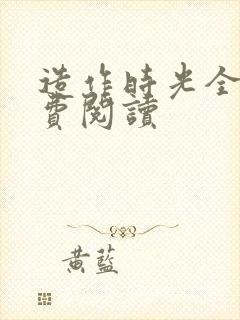 造作時光全
費閱讀
黃藍